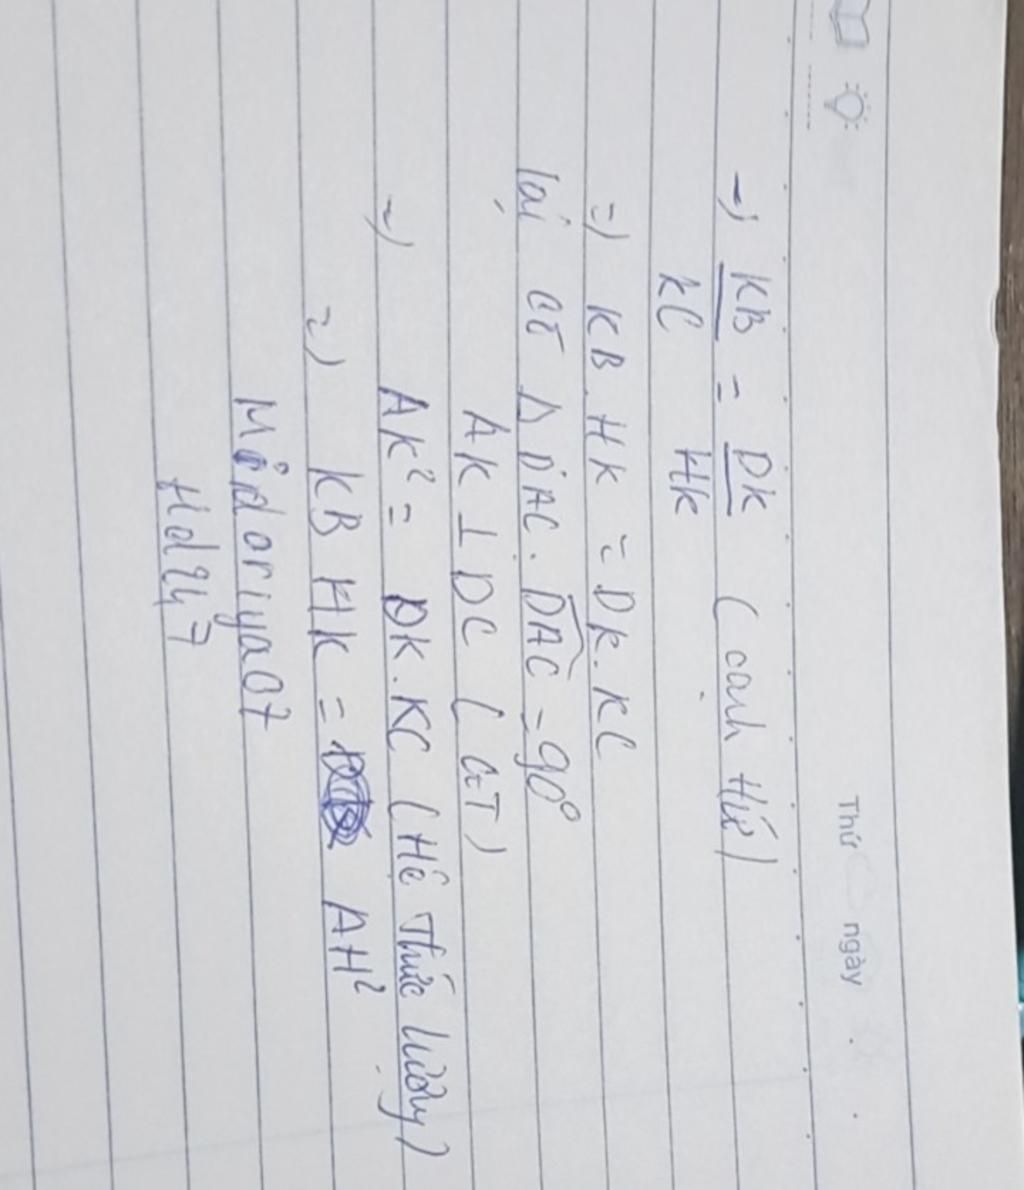 Thứ ngày
→ KB = DK (cạnh Hứ)
KC HK
=) KB.HK = DK.KC
lại có Δ DAC. DAC = 90°
AK ⊥ DC (GT)
=) AK² = DK.KC (Hệ Thức lượng)
=) KB HK = AH²
Midoriya07
Hd247